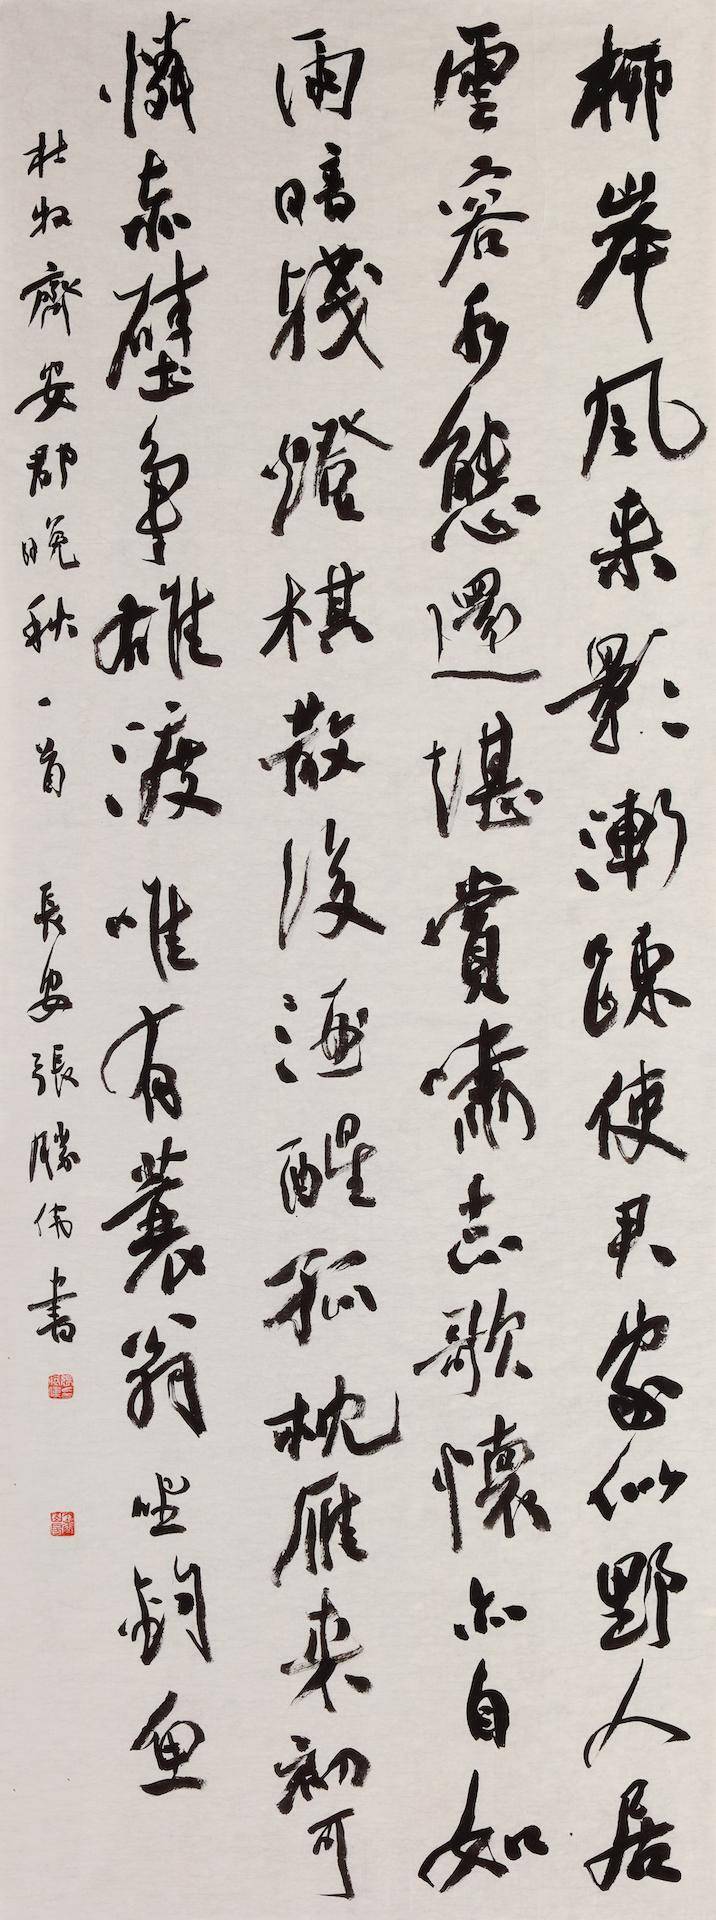 柳岸風来影漸疎使君家似野人居
雲容水態還堪賞嘯志歌懷亦自如
雨暗殘燈棋散後酒醒孤枕雁来初可
憐赤壁争雄渡唯有蓑翁坐釣魚
杜牧齊安郡晚秋一首 長安張勝伟書